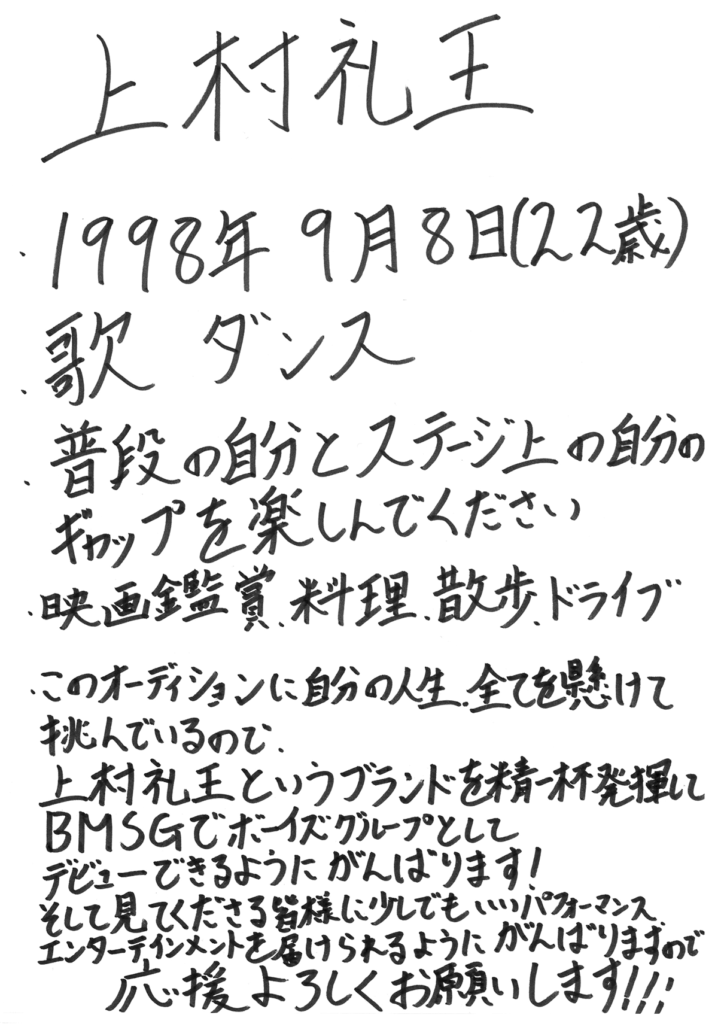 上村礼王
・1998年 9月8日(22歳)
・歌 ダンス
・普段の自分とステージ上の自分の
ギャップを楽しんでください
・映画鑑賞、料理、散歩、ドライブ
・このオーディションに自分の人生、全てを懸けて
挑んでいるので、
上村礼王というブランドを精一杯発揮して
BMSGでボーイズグループとして
デビューできるようにがんばります!
そして見てくださる皆様に少しでもいいパフォーマンス、
エンターテインメントを届けられるようにがんばりますので
応援よろしくお願いします!!!